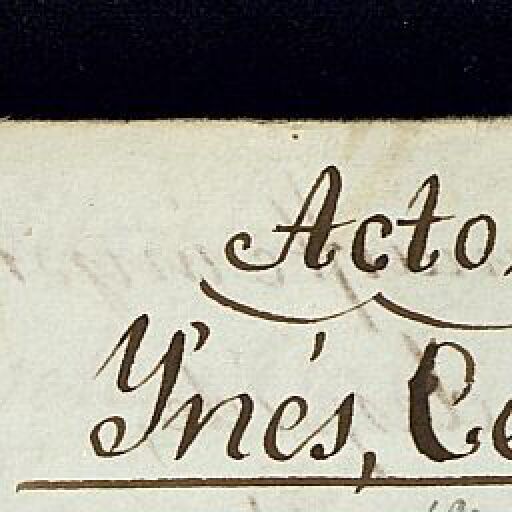 Acto
Ynés, Ce